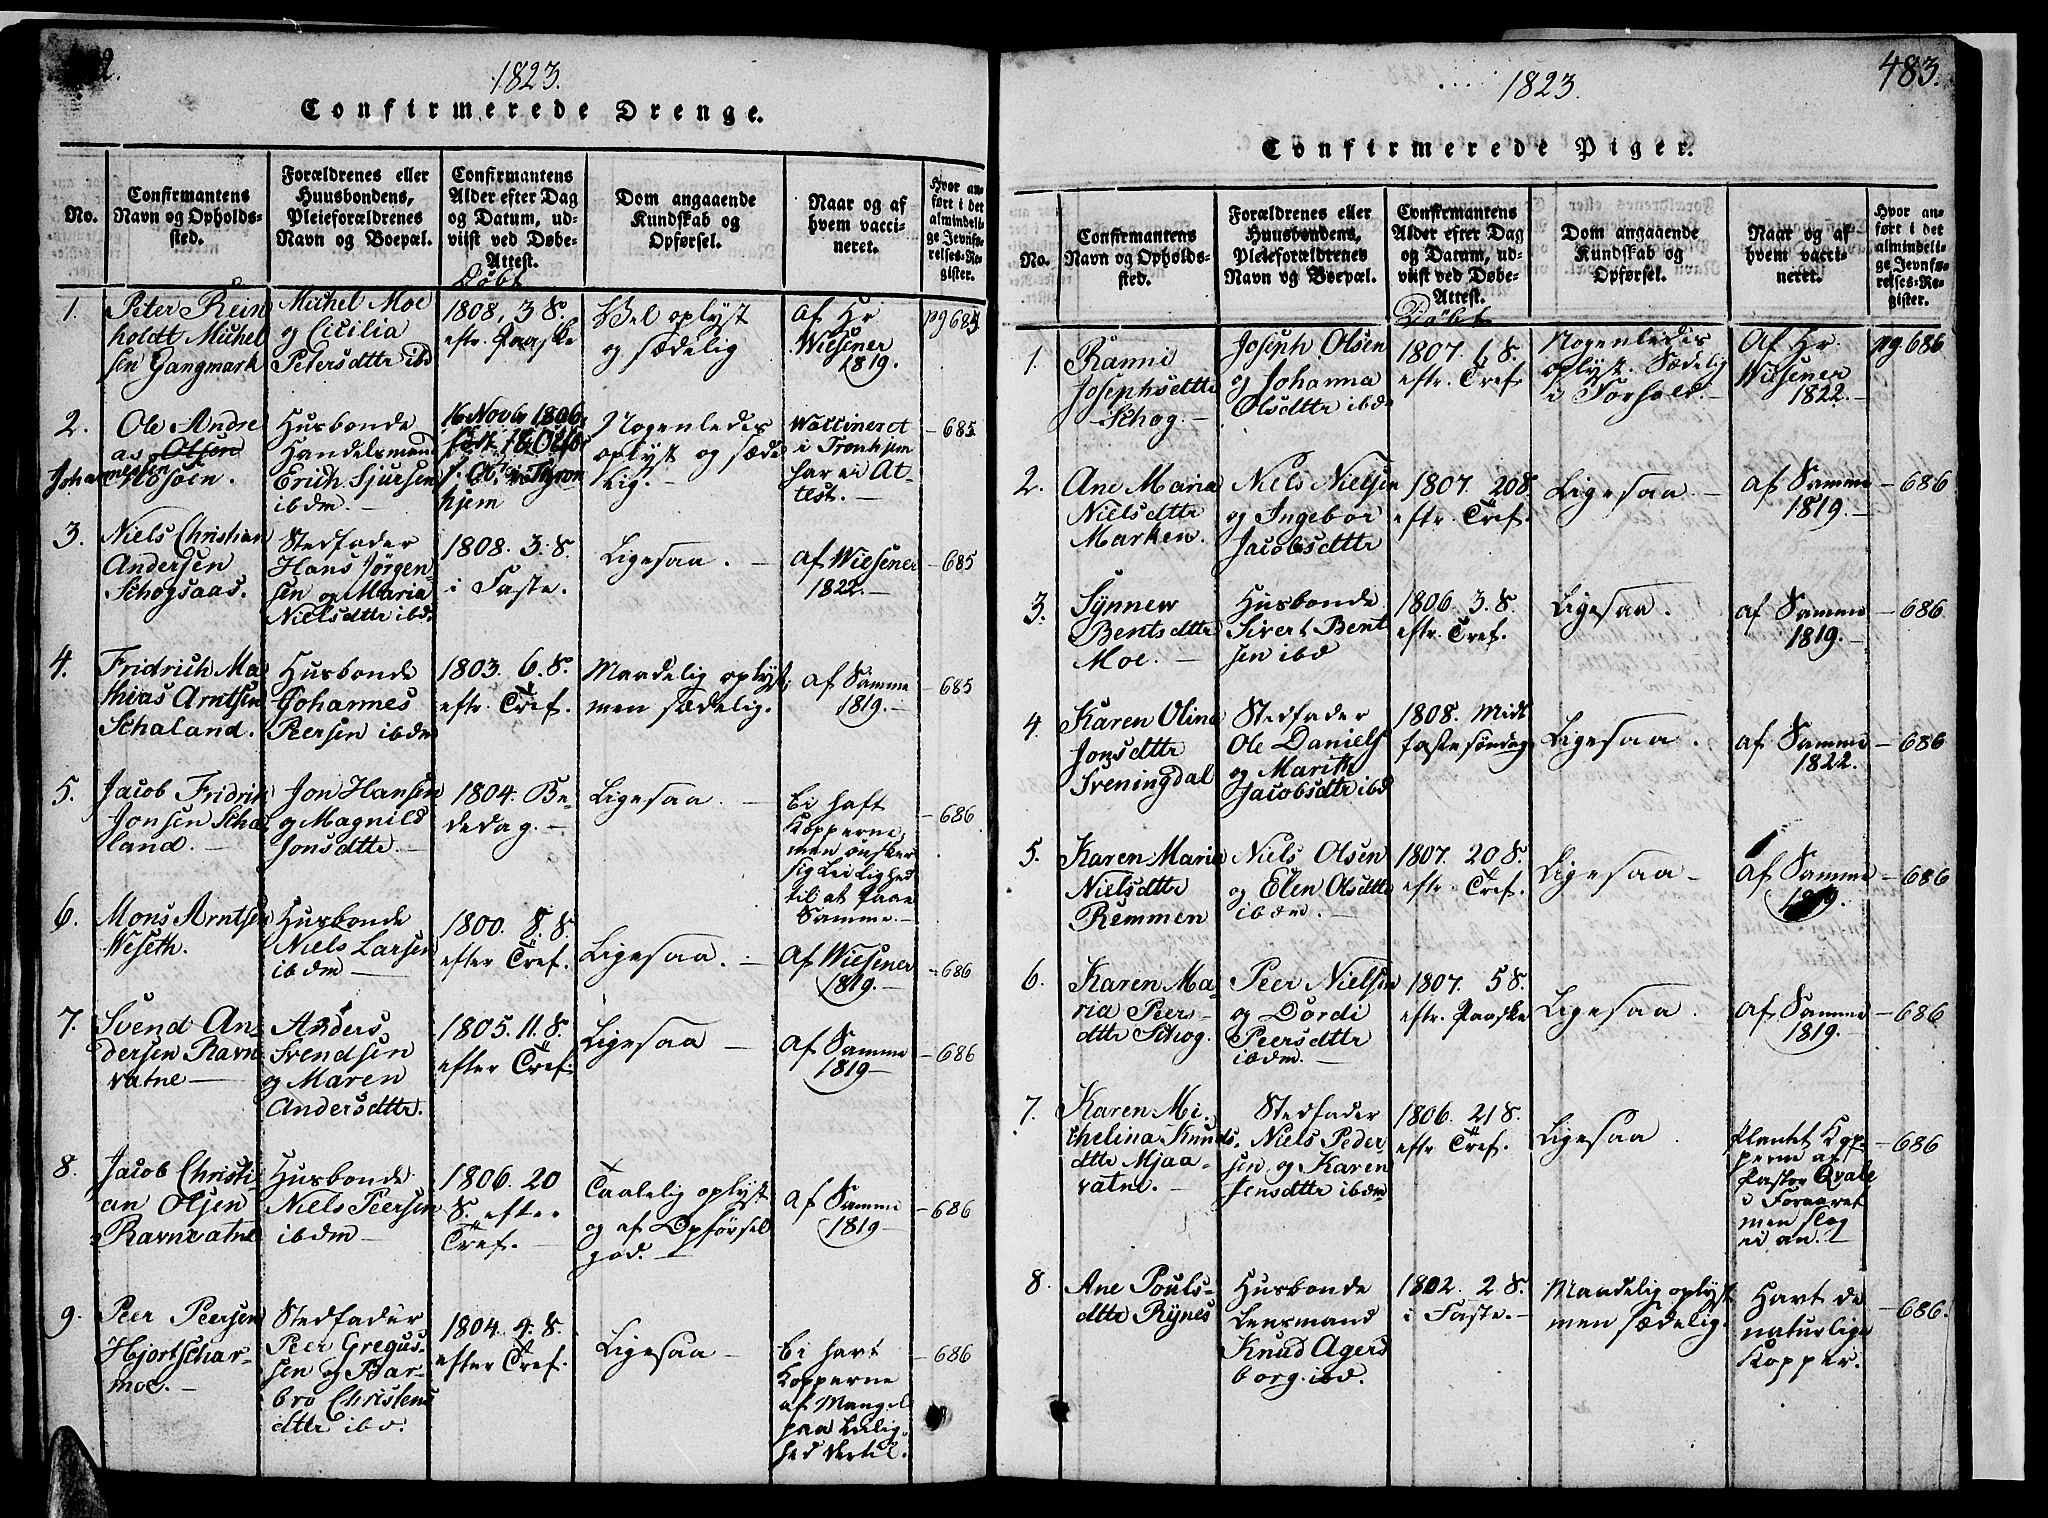 1823.
Confirmerede Drenge.
No.
Confirmantens
Navn og Opholds-
sted.
Forældrenes eller
Huusbondens,
Pleieforældrenes
Navn og Boepæl.
Confirmantens
Alder efter Dag
og Datum, ud-
viist ved Døbe-
Attest.
Døbt
Dom angaaende
Kundskab og
Opførsel.
Naar og af
hvem vacci-
neret.
Hvor an-
ført i det
almindeli-
ge Jevnfø-
relses-Re-
gister.
1.
Peter Rein
holdt Michel
sen Gangmark
Michel Moe
og Cicilia
Petersdttr ibd
1808, 3 S.
eftr. Paaske
Vel oplyst
og sædelig
Af Hr
Wiesener
1819.
pg 685
2.
Ole Andre
as Olsen
Johannessen
Mosøen.
Husbonde
Handelsmand
Erich Sjursen
ibdm. -
16 Novbr 1806
hjem
Nogenledes
oplyst og sæde
lig. -
Waccineret
i Tronhjem
har ei At-
test. -
- 685
3.
Niels Christian
Andersen
Schogsaas.
Stedfader
Hans Jørgen-
sen og Maria
Nielsdttr ibd.
1808. 3. S.
i Faste.
Ligesaa. -
Af Wiesener
1822. -
- 685
4.
Fridrich Ma
thias Arntsen
Schaland.
Husbonde
Johannes
Peersen ibdm
1803. 6. S.
eftr. Tref.
Maadelig oplyst,
men sædelig.
Af Samme
1819. -
- 685
5.
Jacob Fridrik
Jonsen Scha
land. -
Jon Hansen
og Magnild
Jonsdttr. -
1804. Be-
dedag. -
Ligesaa. -
Ei haft
Kopperne,
men ønsker
sig Leilighed
til at faae
Samme. -
- 686
6.
Mons Arntsen
Weseth.
Husbonde
Niels Larsen
ibdm -
1800. 8. S.
efter Tref.
Ligesaa. -
Af Wiesener
1819. -
- 686
7.
Svend An-
dersen Ravn
vatne -
Anders
Svendsen
og Maren
Andersdttr.
1805. 11. S.
efter Tref.
Ligesaa -
Af Samme
1819 -
- 686
8.
Jacob Christi-
an Olsen
Ravnvatne
Husbonde
Niels Peersen
ibdm -
1806. 20
S. efter
Tref. -
Taalelig oplyst
og af Opførsel
god. -
Af Samme
1819
- 686
9.
Peer Peersen
Hjortschar-
moe. -
Stedfader
Peer Gregus-
sen og Bar-
bro Christens
dttr ibd.
1804. 4. S.
efter Tref.
Ligesaa -
Ei havt
Kopperne
af Mangel
paa Leilig-
hed dertil.
- 686
1823.
483.
Confirmerede Piger.
No.
Confirmantens
Navn og Opholds-
sted.
Forældrenes eller
Huusbondens,
Pleieforældrenes
Navn og Boepæl.
Confirmantens
Alder efter Dag
og Datum, ud-
viist ved Døbe-
Attest.
Døbt
Dom angaaende
Kundskab og
Opførsel.
Naar og af
hvem vacci-
neret.
Hvor an-
ført i det
almindeli-
ge Jevnfø-
relses-Re-
gister.
1.
Ranni
Josephsdttr
Schog. -
Joseph Olsen
og Johanna
Olsdttr ibdm
1807. 6 S.
eftr. Tref.
Nogenledes
oplyst. Sædelig
i Forhold. -
Af Hr.
Wiesener
1822. -
pg. 686
2.
Ane Maria
Nielsdttr
Marken.
Niels Nielsen
og Ingebor
Jacobsdttr
1807. 20 S.
eftr. Tref.
Ligesaa. -
Af Samme
1819. -
- 686
3.
Synnew
Bentsdttr
Moe. -
Husbonde
Sivert Bent
sen ibd
1806. 3. S.
eftr. Tref.
Ligesaa.
Af Samme
1819. -
- 686
4.
Karen Olina
Jonsdttr
Sveningdal
Stedfader
Ole Daniels
og Marith
Jacobsdttr ibd
1808. Midt
fastesøndag
Ligesaa.
Af Samme
1822.
- 686
5.
Karen Maria
Nielsdttr
Remmen
Niels Olsen
og Elen Olsdttr
ibdm. -
1807. 20 S.
eftr. Tref.
Ligesaa -
Af Samme
1819.
- 686
6.
Karen Ma-
ria Peers-
dttr Schog.
Peer Nielsen
og Dordi
Peersdttr
ibdm. -
1807. 5 S.
eftr. Paaske
Ligesaa.
Af Samme
1819. -
- 686
7.
Karen Mi-
chelina Knuds-
dttr Mjaa-
vatne. -
Stedfader
Niels Peder
sen og Karen
Jensdttr ibdm
1806. 21 S.
eftr Tref.
Ligesaa
Plantet Kop-
perne af
Pastor Qvale
i Foraaret
men slog
ei an.
- 686
8.
Ane Pouls-
dttr Rynes
Husbonde
Lensmand
Knud Agers
borg. ibd.
1802. 2 S.
i Faste. -
Maadelig oplyst
men sædelig.
Havt de
naturlige
Kopper.
- 686.